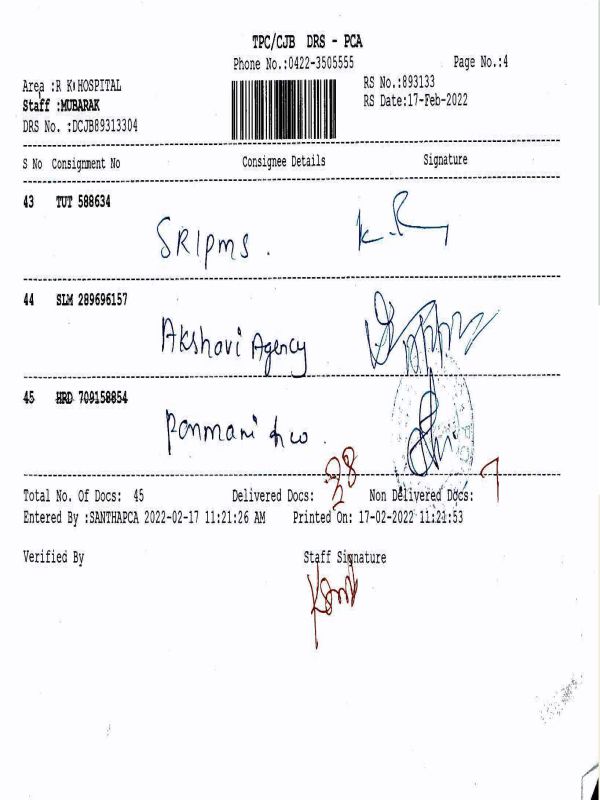 TPC/CJB DRS - PCA
Phone No.:0422-3505555 Page No.:4
Area :R K HOSPITAL RS No.:893133
Staff :MUBARAK RS Date:17-Feb-2022
DRS No. :DCJB89313304
S No Consignment No Consignee Details Signature
43 TUT 588634
SRIPMS.
44 SLM 289696157
Akshavi Agency
45 HRD 709158854
Ponmani & co.
Total No. Of Docs: 45 Delivered Docs: 38 Non Delivered Docs: 7
Entered By :SANTHAPCA 2022-02-17 11:21:26 AM Printed On: 17-02-2022 11:21:53
Verified By Staff Signature